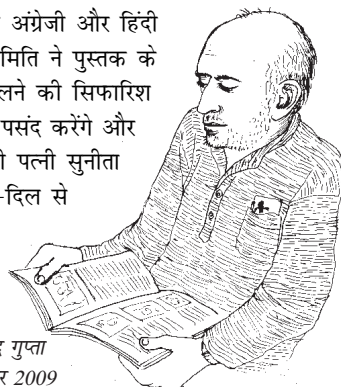 अंग्रेजी और हिंदी
मिति ने पुस्तक के
लने की सिफारिश
पसंद करेंगे और
पत्नी सुनीता
-दिल से
गुप्ता
र 2009